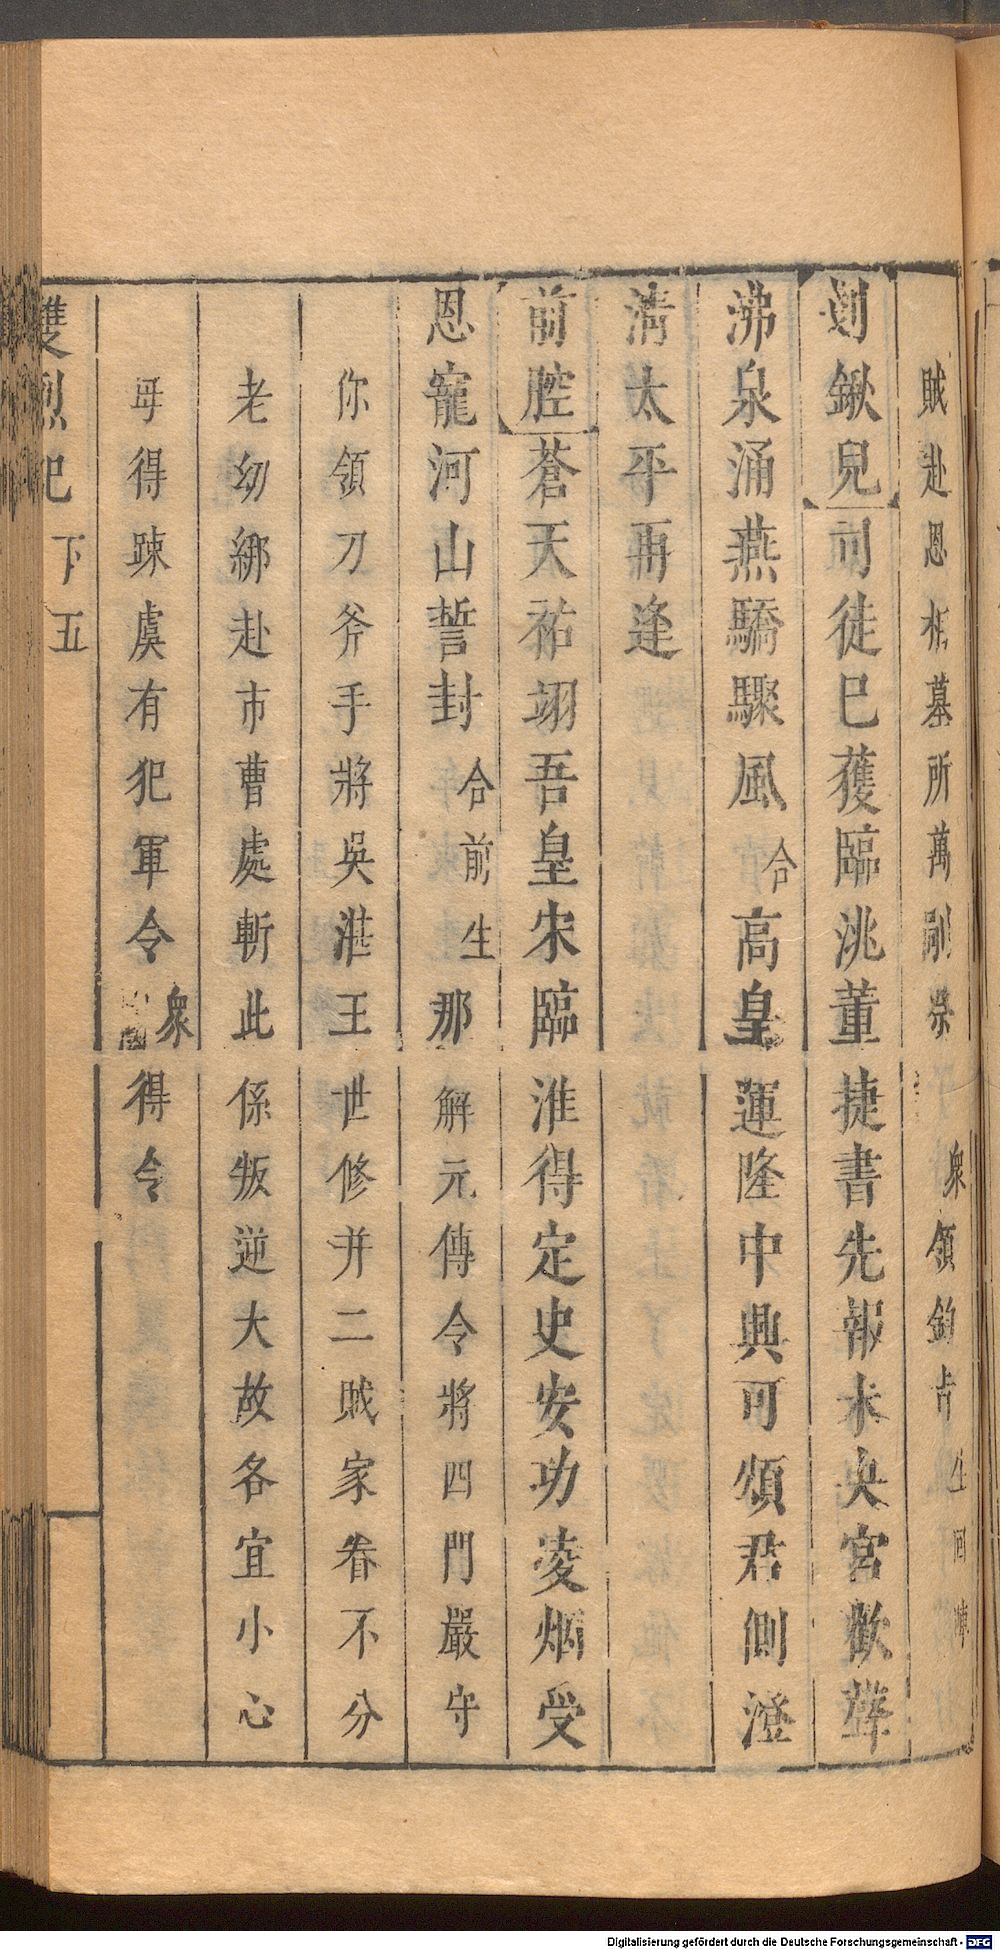 賊赴恩相墓所萬剮祭 衆領鈞旨 生回陣
剗鍬兒 司徒已獲臨洮董捷書先報未央宮歡聲
沸泉涌燕驕驟風 合 高皇運隆中興可頌君側澄
淸太平再逢
前腔 蒼天祐翊吾皇宋臨淮得定史安功凌烟受
恩寵河山誓封 合前 生 那解元傳令將四門嚴守
你領刀斧手將吳湛王世修并二賊家眷不分
老幼綁赴市曹處斬此係叛逆大故各宜小心
毋得踈虞有犯軍令 衆 得令
雙烈記 下 五
Digitalisierung gefördert durch die Deutsche Forschungsgemeinschaft - DFG